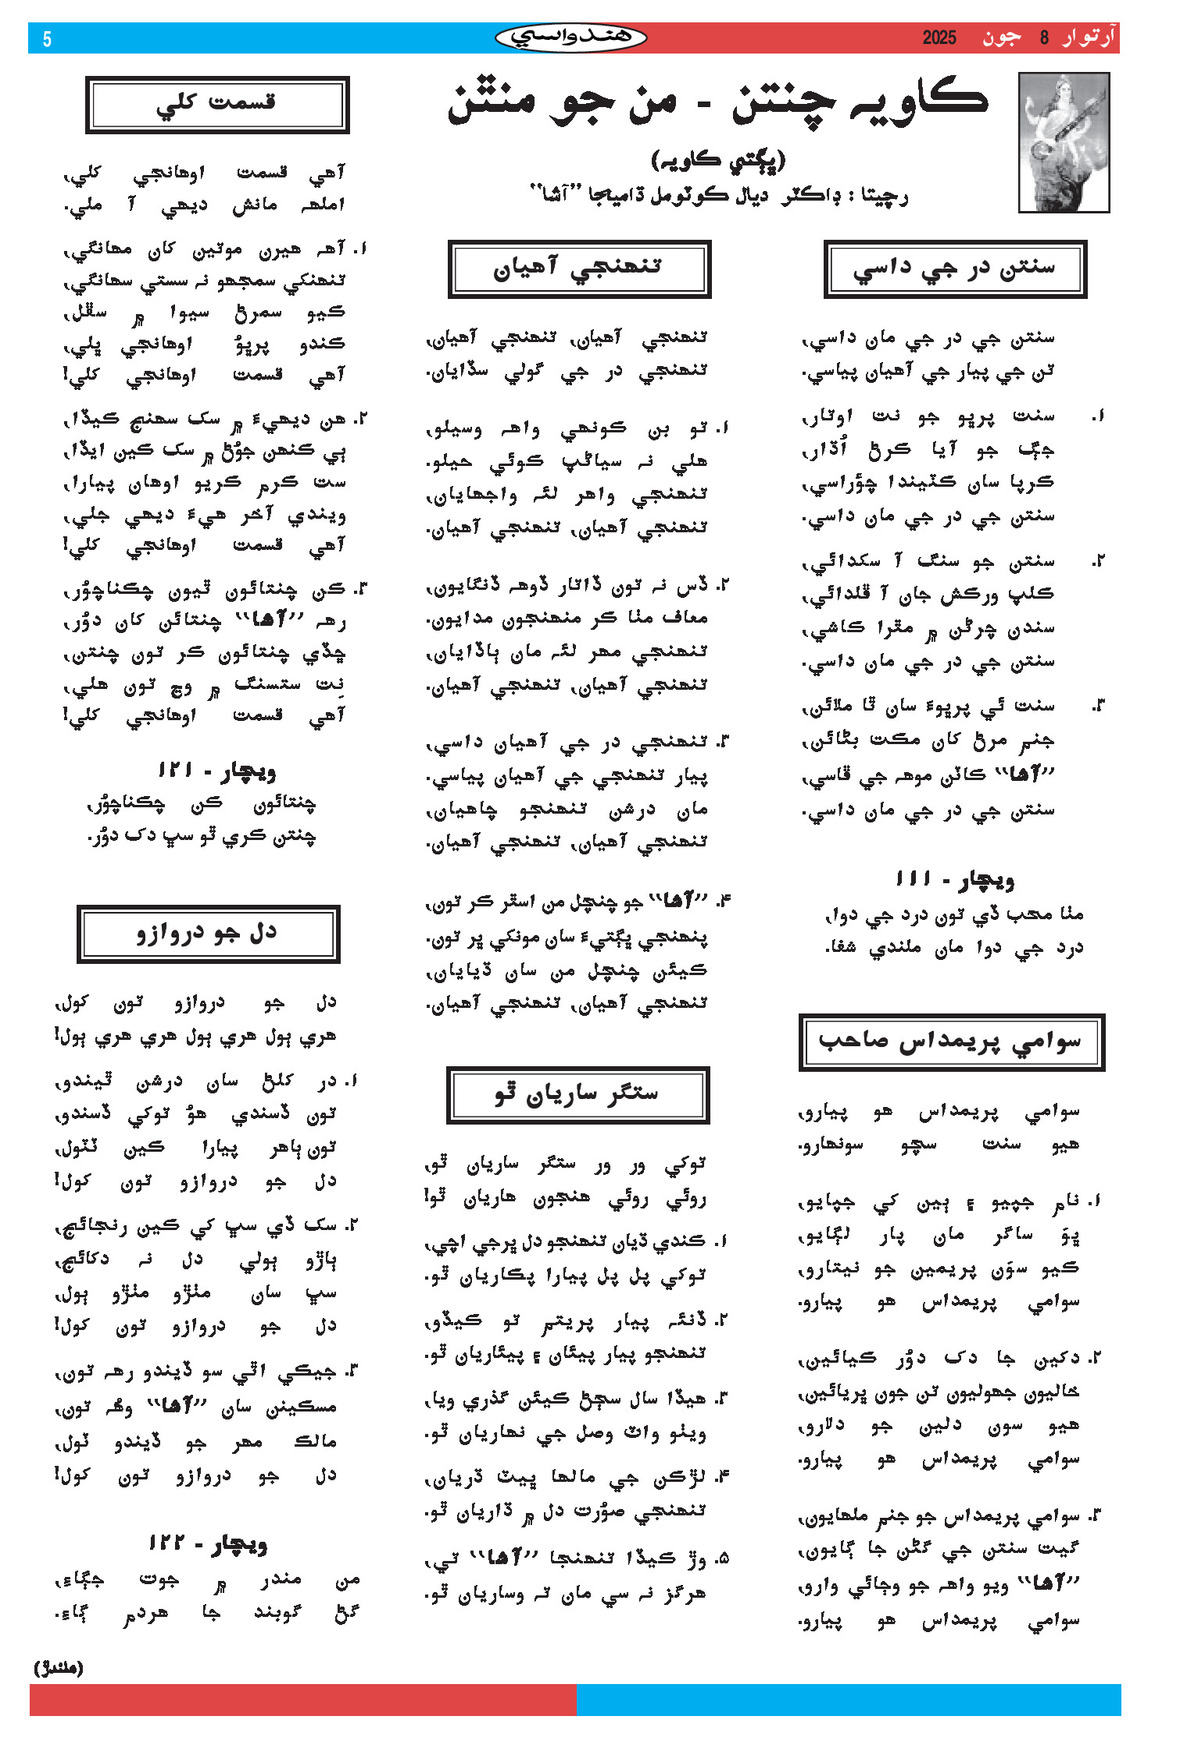 آرتوار 8 جون 2025
هندواسي
5
ڪاويہ چنتن - من جو منٿن
(ڀڳتي ڪاويہ)
رچيتا : ڊاڪٽر ديال ڪوٽومل ڌاميجا ”آشا“
سنتن در جي داسي
سنتن جي در جي مان داسي،
تن جي پيار جي آهيان پياسي.
١. سنت پرڀو جو نت اوتار،
جڳ جو آيا ڪرڻ اُڌار،
ڪرپا سان ڪٽيندا چؤراسي،
سنتن جي در جي مان داسي.
٢. سنتن جو سنگ آ سکدائي،
ڪلپ ورکش جان آ ڦلدائي،
سندن چرڻن ۾ مٿرا ڪاشي،
سنتن جي در جي مان داسي.
٣. سنت ئي پرڀوءَ سان ٿا ملائن،
جنم مرڻ کان مڪت بڻائن،
”آشا“ ڪاٽن موهہ جي ڦاسي،
سنتن جي در جي مان داسي.
ويچار - ١١١
مٺا محب ڏي تون درد جي دوا،
درد جي دوا مان ملندي شفا.
سوامي پريمداس صاحب
سوامي پريمداس هو پيارو،
هيو سنت سچو سونهارو.
١. نام جپيو ۽ ٻين کي جپايو،
ڀوَ ساگر مان پار لڳايو،
ڪيو سوَن پريمين جو نيتارو،
سوامي پريمداس هو پيارو.
٢. دکين جا دک دوُر ڪيائين،
خاليون جهوليون تن جون ڀريائين،
هيو سون دلين جو دلارو،
سوامي پريمداس هو پيارو.
٣. سوامي پريمداس جو جنم ملهايون،
گيت سنتن جي گڻن جا ڳايون،
”آشا“ ويو واهہ جو وڄائي وارو،
سوامي پريمداس هو پيارو.
تنهنجي آهيان
تنهنجي آهيان، تنهنجي آهيان،
تنهنجي در جي گولي سڏايان.
١. تو بن ڪونهي واهہ وسيلو،
هلي نہ سياڻپ ڪوئي حيلو.
تنهنجي واهر لئہ واجهايان،
تنهنجي آهيان، تنهنجي آهيان.
٢. ڏس نہ تون ڏاتار ڏوهہ ڏنگايون،
معاف مٺا ڪر منهنجون مدايون.
تنهنجي مهر لئہ مان ٻاڏايان،
تنهنجي آهيان، تنهنجي آهيان.
٣. تنهنجي در جي آهيان داسي،
پيار تنهنجي جي آهيان پياسي.
مان درشن تنهنجو چاهيان،
تنهنجي آهيان، تنهنجي آهيان.
۴. ”آشا“ جو چنچل من اسٿر ڪر تون،
پنهنجي ڀڳتيءَ سان مونکي ڀر تون.
ڪيئن چنچل من سان ڏيايان،
تنهنجي آهيان، تنهنجي آهيان.
ستگر ساريان ٿو
توکي ور ور ستگر ساريان ٿو،
روئي روئي هنجون هاريان ٿو!
١. ڪندي ڏيان تنهنجو دل ڀرجي اچي،
توکي پل پل پيارا پڪاريان ٿو.
٢. ڏنئہ پيار پريتم تو ڪيڏو،
تنهنجو پيار پيئان ۽ پيئاريان ٿو.
٣. هيڏا سال سڄڻ ڪيئن گذري ويا،
ويٺو واٽ وصل جي نهاريان ٿو.
۴. لڙڪن جي مالها ڀيٽ ڌريان،
تنهنجي صوُرت دل ۾ ڌاريان ٿو.
۵. وڙ ڪيڏا تنهنجا ”آشا“ تي،
هرگز نہ سي مان تہ وساريان ٿو.
قسمت کلي
آهي قسمت اوهانجي کلي،
املهہ مانش ديهي آ ملي.
١. آهہ هيرن موتين کان مهانگي،
تنهنکي سمجهو نہ سستي سهانگي،
ڪيو سمرڻ سيوا ۾ سڦل،
ڪندو پرڀوُ اوهانجي ڀلي،
آهي قسمت اوهانجي کلي!
٢. هن ديهيءَ ۾ سک سهنج ڪيڏا،
ٻي ڪنهن جوُڻ ۾ سک ڪين ايڏا،
ست ڪرم ڪريو اوهان پيارا،
ويندي آخر هيءَ ديهي جلي،
آهي قسمت اوهانجي کلي!
٣. ڪن چنتائون ٿيون چڪناچوُر،
رهہ ”آشا“ چنتائن کان دوُر،
ڇڏي چنتائون ڪر تون چنتن،
نِت ستسنگ ۾ وڃ تون هلي،
آهي قسمت اوهانجي کلي!
ويچار - ١٢١
چنتائون ڪن چڪناچوُر،
چنتن ڪري ٿو سڀ دک دوُر.
دل جو دروازو
دل جو دروازو تون کول،
هري ٻول هري ٻول هري هري ٻول!
١. در کلڻ سان درشن ٿيندو،
تون ڏسندي هوُ توکي ڏسندو،
تون ٻاهر پيارا ڪين ٽٽول،
دل جو دروازو تون کول!
٢. سک ڏي سڀ کي ڪين رنجائج،
ٻاڙو ٻولي دل نہ دکائج،
سڀ سان مٺڙو مٺڙو ٻول،
دل جو دروازو تون کول!
٣. جيڪي اٿي سو ڏيندو رهہ تون،
مسڪينن سان ”آشا“ وهُہ تون،
مالڪ مهر جو ڏيندو ٽول،
دل جو دروازو تون کول!
ويچار - ١٢٢
من مندر ۾ جوت جڳاءِ،
گڻ گوبند جا هردم ڳاءِ.
(هلندڙ)